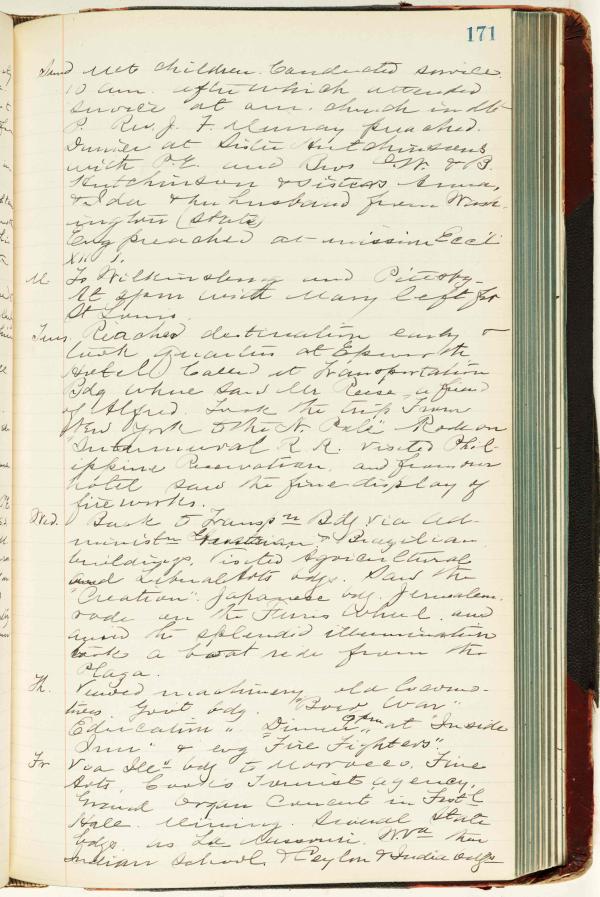 171
Sund Met children. Conducted service
10 am. after which attended
service at am. church indlt
P. Rev. J. F. Murray preached.
Dinner at Sister Hutchinsons
with P.E. and Bros & B.
Hutchinson & sisters Anna,
& Ida & her husband from Wash-
ington (State)
Evg preached at mission Eccl
XII. 1.
M To Wilkinsburg and Pittsbg.
At 8pm with Mary left for
St Louis.
Tues. Reached destination early &
took quarters at Epworth
Hotel. Called at Transportation
Bdg where saw Mr Reese, a friend
of Alfred. Took the trip "From
New York to the N. Pole" Rode on
Intermural R. R. Visited Phil-
ippine Reservation, and from our
hotel saw the fine display of
fireworks.
Wed. Back to Transpn Bdg via Ad-
ministn & Brazilian
buildings. Visited Agricultural
and Liberal Arts bdgs. Saw the
"Creation". Japanese bdg. Jerusalem.
rode on the Ferris Wheel. and
amid the splendid illumination
took a boat ride from the
Plaza.
Th. Viewed machinery, old locomo-
tives Govt bdg. "Boer War"
Education ". Dinner at "Inside
Inn" & evg "Fire Fighters".
Fr Via Ills bdg to Morrocco. Fine
Arts, Cook's Tourist agency,
Grand Organ Concert in Festl
Hall. Mining. Several State
bdgs. as La Missouri. W Va then
Indian School, & Ceylon & India bdgs